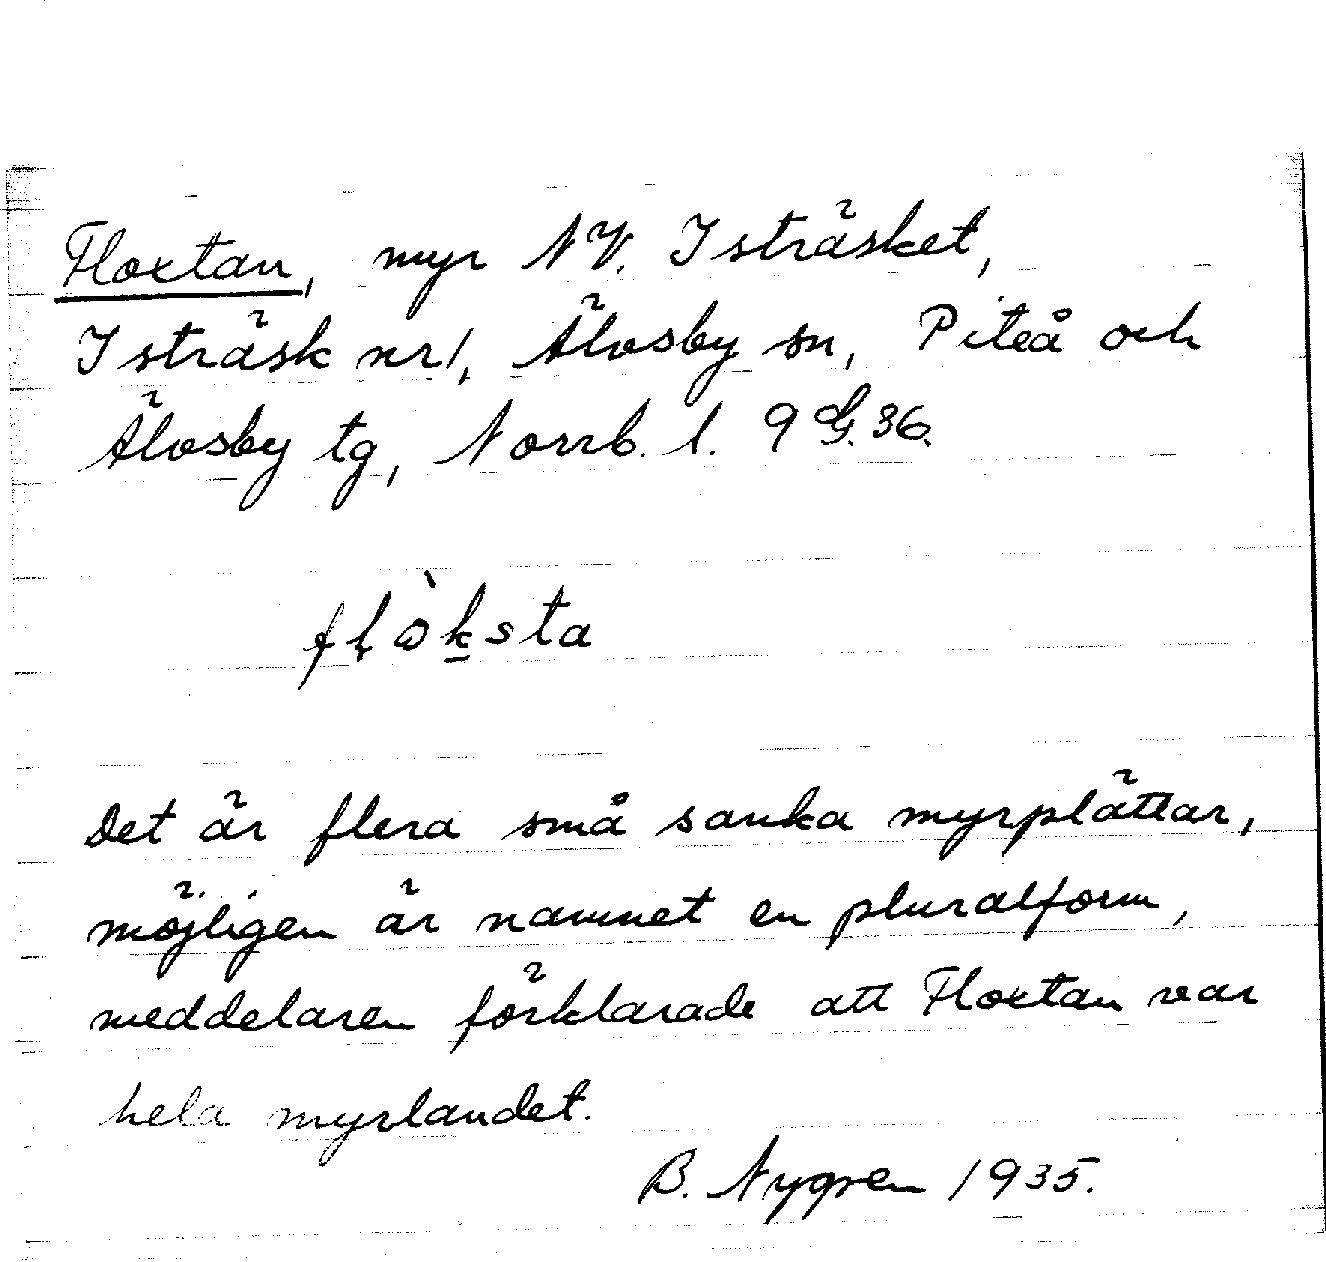 Floxtan, myr NV. Isträsket,
Isträsk nr 1, Älvsby sn, Piteå och
Älvsby tg, Norrb. l. 9 G. 36.
flòksta
Det är flera små sanka myrplättar,
möjligen är namnet en pluralform,
meddelaren förklarade att Floxtan var
hela myrlandet.
B. Nygren 1935.